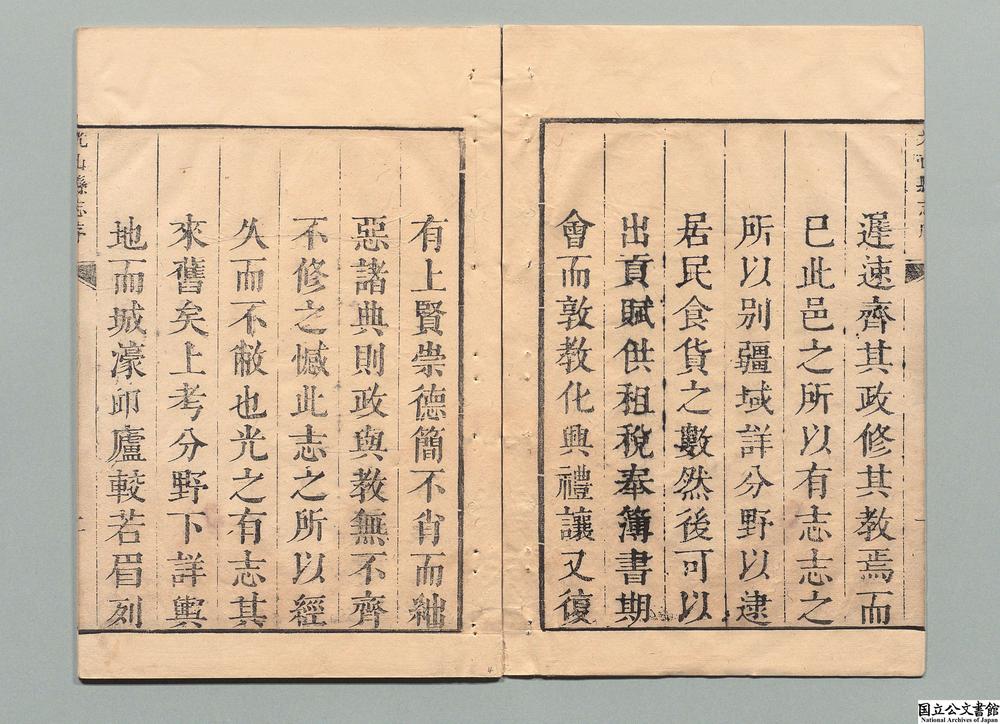 遲速齊其政修其教焉而
已此邑之所以有志志之
所以別疆域詳分野以逮
居民食貨之數然後可以
出貢賦供租稅奉簿書期
會而敦教化興禮讓又復
有上賢崇德簡不肖而絀
惡諸典則政與教無不齊
不修之憾此志之所以經
久而不敝也光之有志其
來舊矣上考分野下詳輿
地而城濠卭廬較若眉列
光山縣志序
国立公文書館
National Archives of Japan